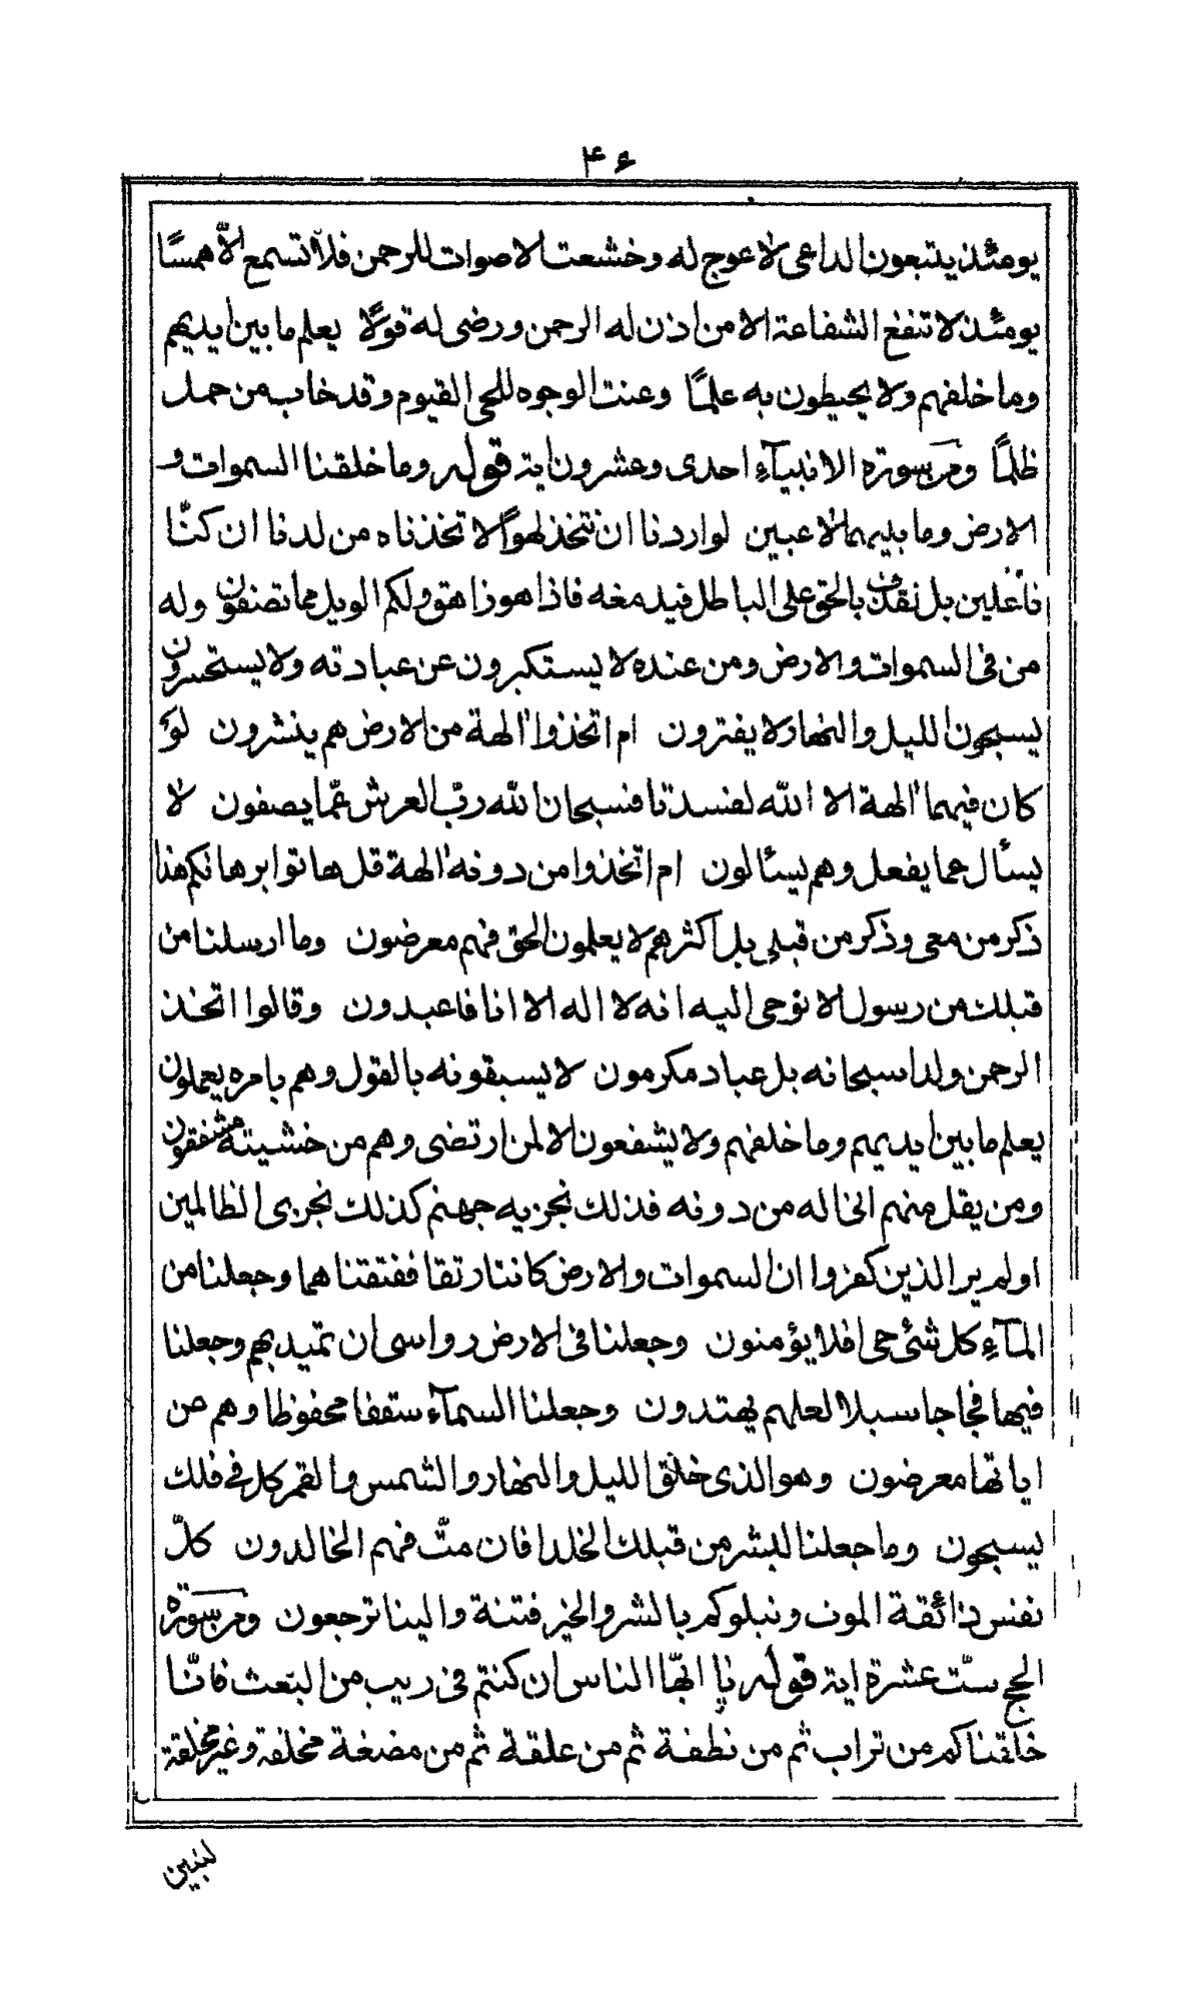 ۴۶
يومئذ يتبعون الداعى لا عوج له وخشعت الاصوات للرحمن فلا تسمع الّا همسًا
يومئذ لا تنفع الشفاعة الا من اذن له الرحمن ورضى له قولًا يعلم ما بين ايديهم
وما خلفهم ولا يحيطون به علمًا وعنت الوجوه للحى القيوم وقد خاب من حمل
ظلمًا ومن سورة الانبيآء احدى وعشرون اية قوله وما خلقنا السموات و
الارض وما بينهما لاعبين لو اردنا ان نتخذ لهوًا لا تخذناه من لدنا ان كنّا
فاعلين بل نقذف بالحق على الباطل فيدمغه فاذا هو زاهق ولكم الويل مما تصفون وله
من فى السموات والارض ومن عنده لا يستكبرون عن عبادته ولا يستحسرون
يسبحون الليل والنهار لا يفترون ام اتخذوا الهة من الارض هم ينشرون لو
كان فيهما الهة الا الله لفسدتا فسبحان الله ربّ العرش عمّا يصفون لا
يسأل عما يفعل وهم يسئالون ام اتخذوا من دونه الهة قل هاتوا برهانكم هذا
ذكر من معى وذكر من قبلى بل اكثرهم لا يعلمون الحق فهم معرضون وما ارسلنا من
قبلك من رسول الا نوحى اليه انه لا اله الا انا فاعبدون وقالوا اتخذ
الرحمن ولدا سبحانه بل عباد مكرمون لا يسبقونه بالقول وهم بامره يعملون
يعلم ما بين ايديهم وما خلفهم ولا يشفعون الا لمن ارتضى وهم من خشيته مشفقون
ومن يقل منهم انى اله من دونه فذلك نجزيه جهنم كذلك نجزى الظالمين
اولم ير الذين كفروا ان السموات والارض كانتا رتقا ففتقنا هما وجعلنا من
المآء كل شئ حى افلا يؤمنون وجعلنا فى الارض رواسى ان تميد بهم وجعلنا
فيها فجاجا سبلا لعلهم يهتدون وجعلنا السمآء سقفا محفوظا وهم عن
اياتها معرضون وهو الذى خلق الليل والنهار والشمس والقمر كل فى فلك
يسبحون وما جعلنا لبشر من قبلك الخلد افان متّ فهم الخالدون كلّ
نفس ذائقة الموت ونبلوكم بالشر والخير فتنة والينا ترجعون ومن سورة
الحج ستّ عشرة اية قوله يا ايّها الناس ان كنتم فى ريب من البعث فانّا
خلقناكم من تراب ثم من نطفة ثم من علقة ثم من مضغة مخلقة وغير مخلقة
لنبين